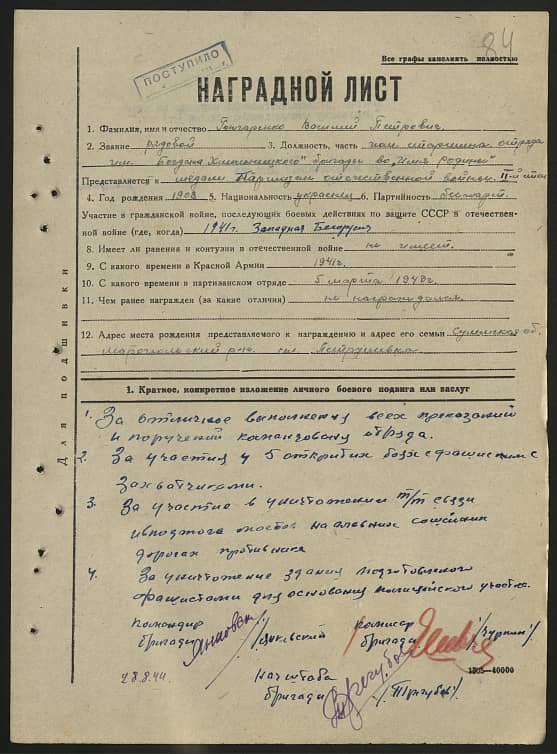 84
Все графы заполнять полностью
ПОСТУПИЛО
НАГРАДНОЙ ЛИСТ
1. Фамилия, имя и отчество Гончаренко Василий Петрович
2. Звание рядовой 3. Должность, часть пом. старшина отряда
им. Богдана Хмельницкого" бригады во "Имя Родины"
Представляется к медали Партизан отечественной войны II-й степ
4. Год рождения 1908 5. Национальность украинец 6. Партийность беспарт.
Участие в гражданской войне, последующих боевых действиях по защите СССР в отечествен-
ной войне (где, когда) 1941г. Западная Белорусия
8. Имеет ли ранения и контузии в отечественной войне не имеет.
9. С какого времени в Красной Армии 1941г.
10. С какого времени в партизанском отряде 5 марта
11. Чем ранее награжден (за какие отличия) не награждался
12. Адрес места рождения представляемого к награждению и адрес его семьи Сумская об.
р-н. Петрушевка
Для подшивки
1. Краткое, конкретное изложение личного боевого подвига или заслуг
1. За отличное выполнения всех приказаний
и поручений командования отряда.
2. За участия у 5 открытих боях с фашискими
захватчиками.
3. За участие в уничтожении т/т связи
мостов на
дорогах противника
4. За уничтожение здания подготовленого
фашистами для основания полицейского участка.
Командир комисар
бригады бригады /Чуркин/
28.8.44. Нач штаба
бригады
1305—10000